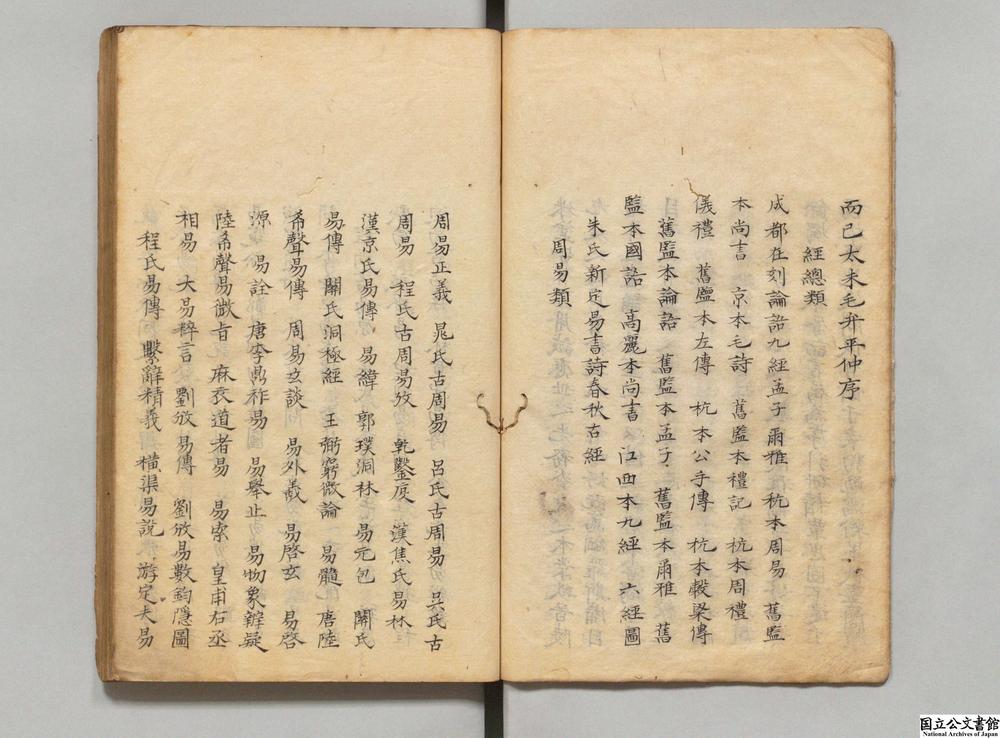 而已太末毛幵平仲序
經總類
成都石刻論語九經孟子爾雅 杭本周易 舊監
本尚書 京本毛詩 舊監本禮記 杭本周禮
儀禮 舊監本左傳 杭本公羊傳 杭本穀梁傳
舊監本論語 舊監本孟子 舊監本爾雅 舊
監本國語 高麗本尚書 江西本九經 六經圖
朱氏新定易書詩春秋古經
周易類
周易正義 晁氏古周易 呂氏古周易 吳氏古
周易 程氏古周易攷 乾鑿度 漢焦氏易林
漢京氏易傳 易緯 郭璞洞林 易元包 關氏
易傳 關氏洞極經 王弼窮微論 易髓 唐陸
希聲易傳 周易玄談 易外義 易啓玄 易啓
源 易詮 唐李鼎祚易 易舉止 易物象辨疑
陸希聲易微旨 麻衣道者易 易索 皇甫右丞
相易 大易粹言 劉攽易傳 劉攽易數鈎隱圖
程氏易傳 繫辭精義 橫渠易說 游定夫易
国立公文書館
National Archives of Japan